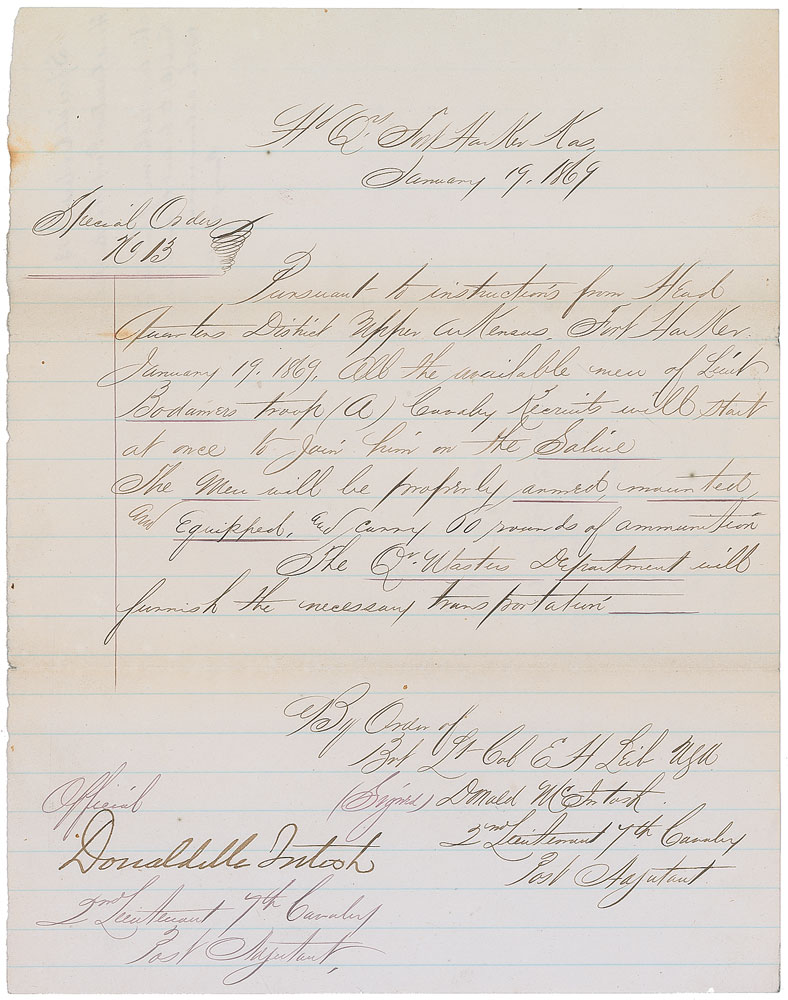 Hd Qrs Fort Harker Kas,
January 19. 1869
Special Orders
No 13
Pursuant to instructions from Head
Quarters District Upper Arkansas. Fort Harker.
January 19. 1869. All the available men of Lieut
Bodamers troop (A) Cavalry Recruits will start
at once to join him on the Saline
The Men will be properly armed, mounted,
and Equipped, and carry 60 rounds of ammunition
The Qr. Masters Department will
furnish the necessary transportation
By Order of
Bvt Lt Col E H Leib USA
Official (Signed) Donald McIntosh.
2nd Lieutenant 7th Cavalry
Post Adjutant
Donald McIntosh
2nd Lieutenant 7th Cavalry
Post Adjutant,